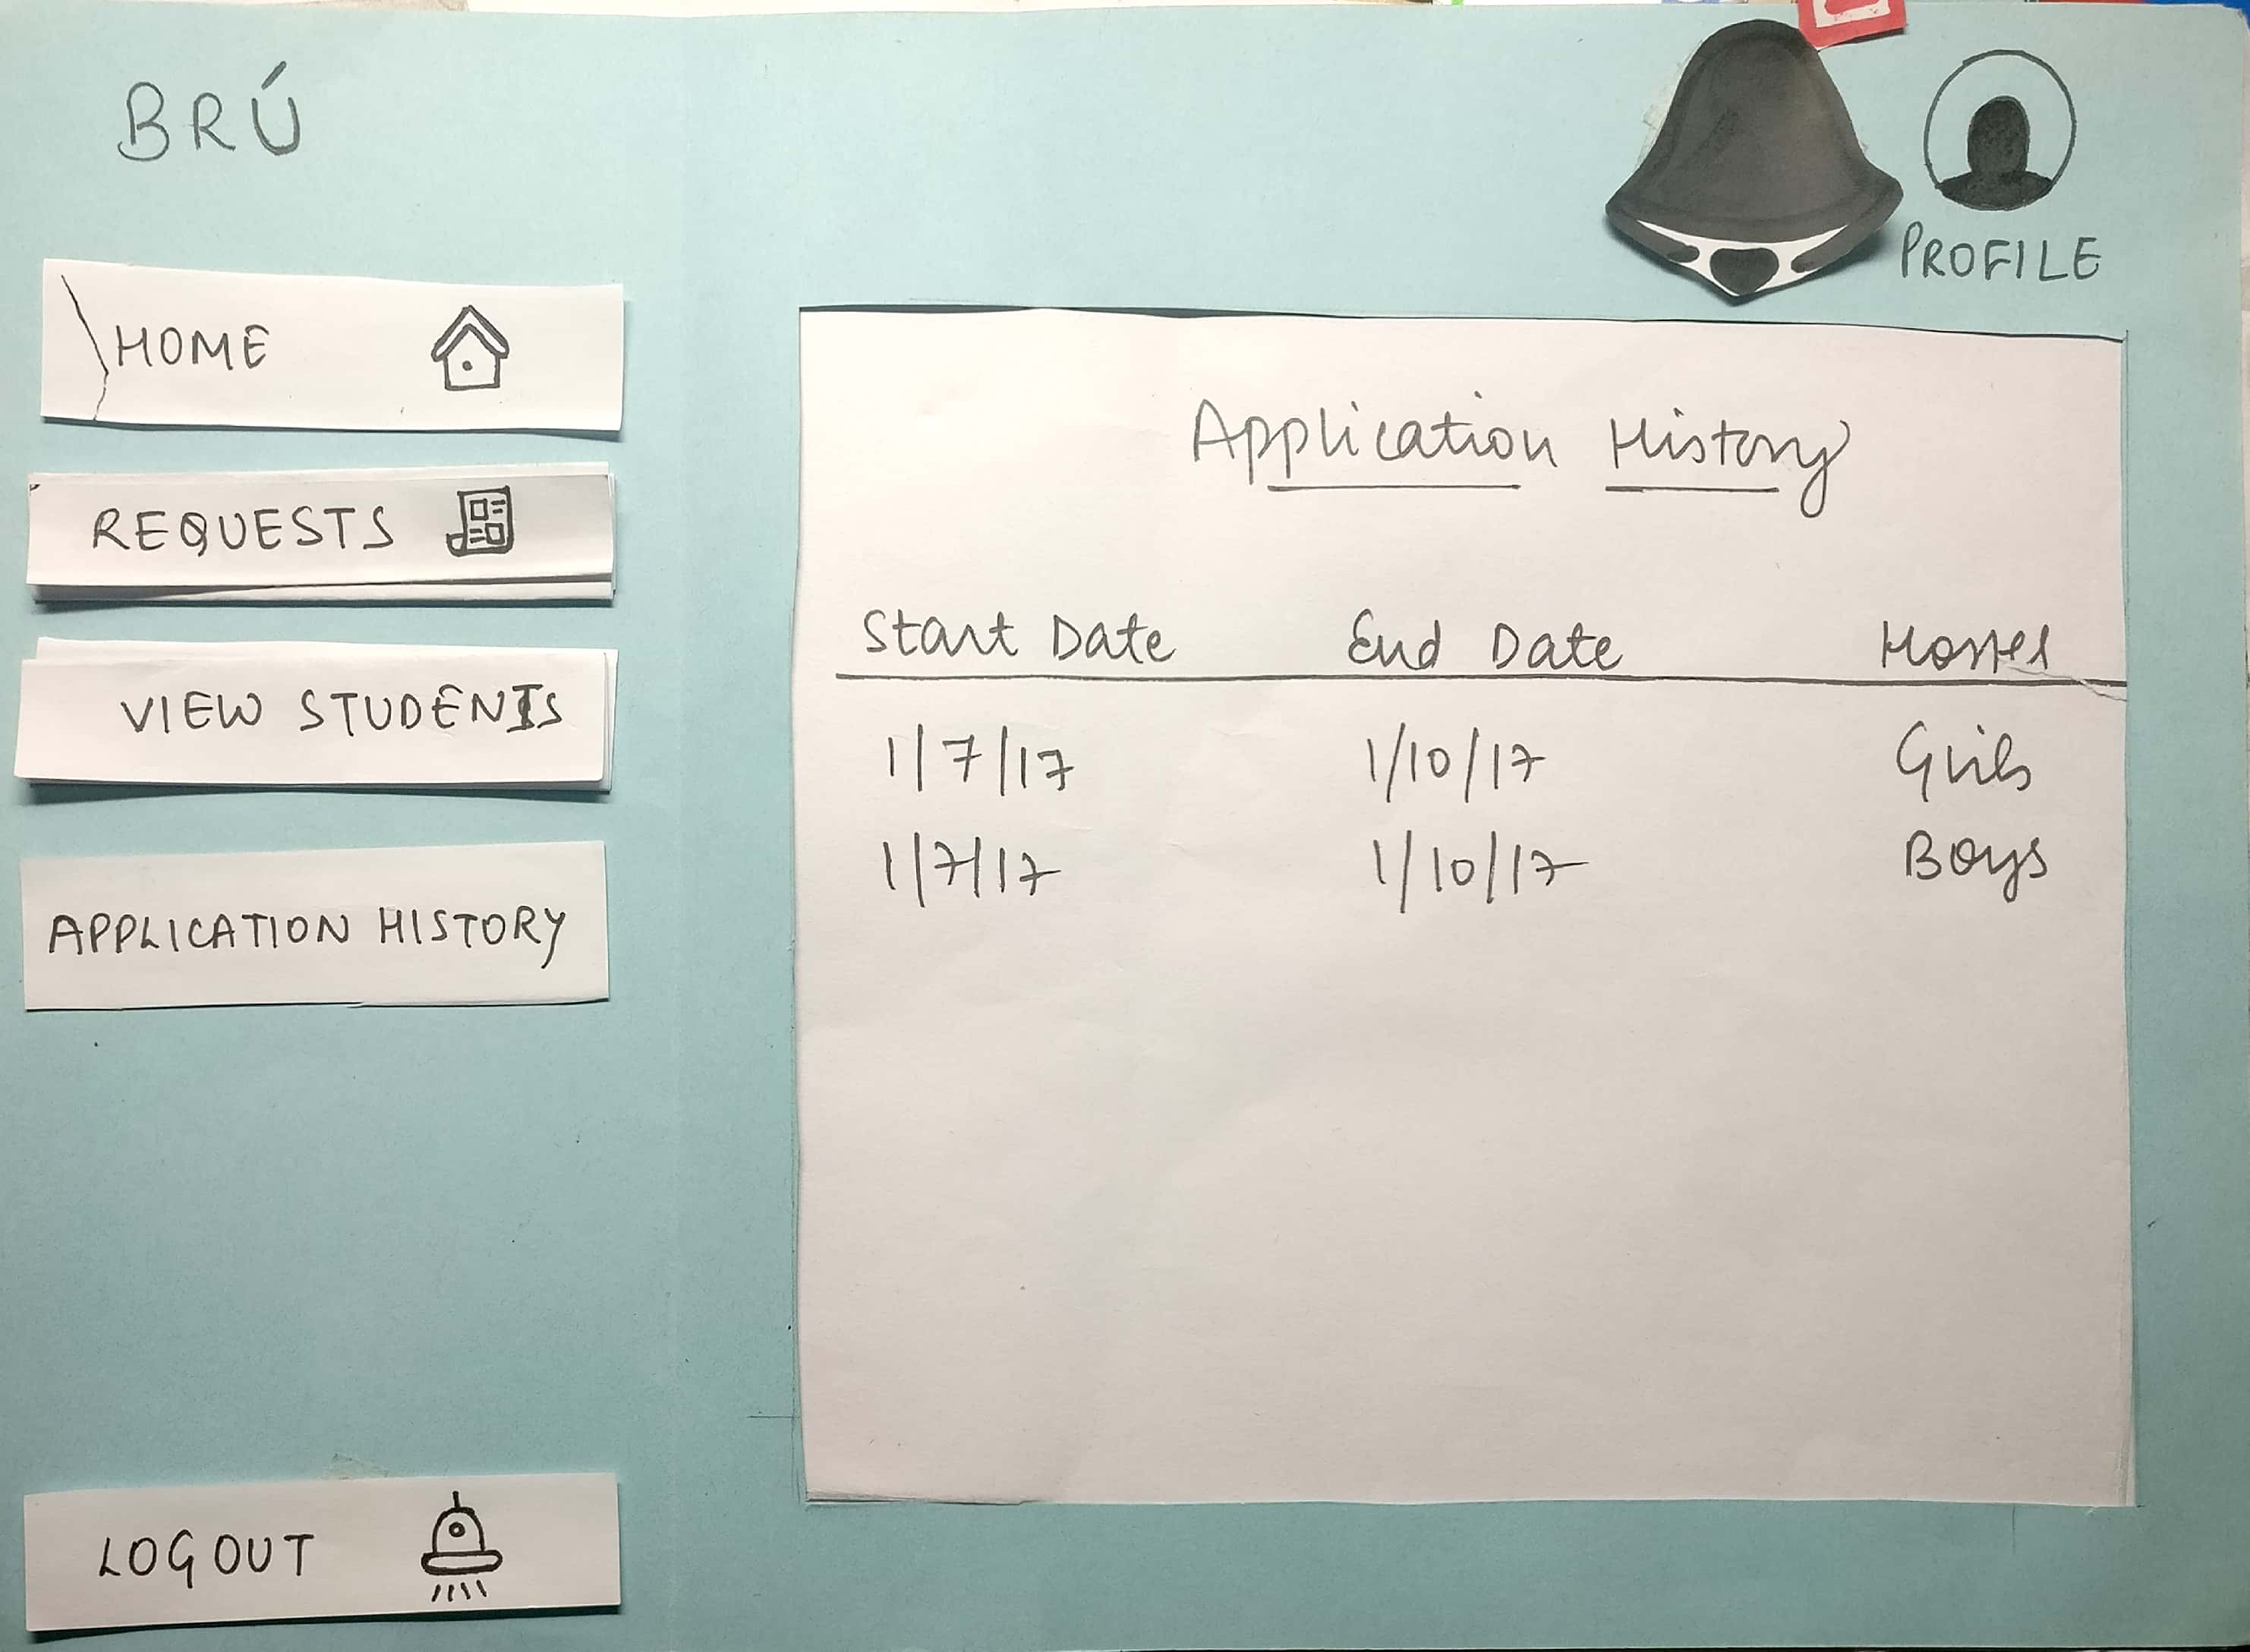 BRÚ
PROFILE
HOME
REQUESTS
VIEW STUDENTS
APPLICATION HISTORY
LOGOUT
Application History
Start Date End Date Hostel
1/7/17 1/10/17 Girls
1/7/17 1/10/17 Boys